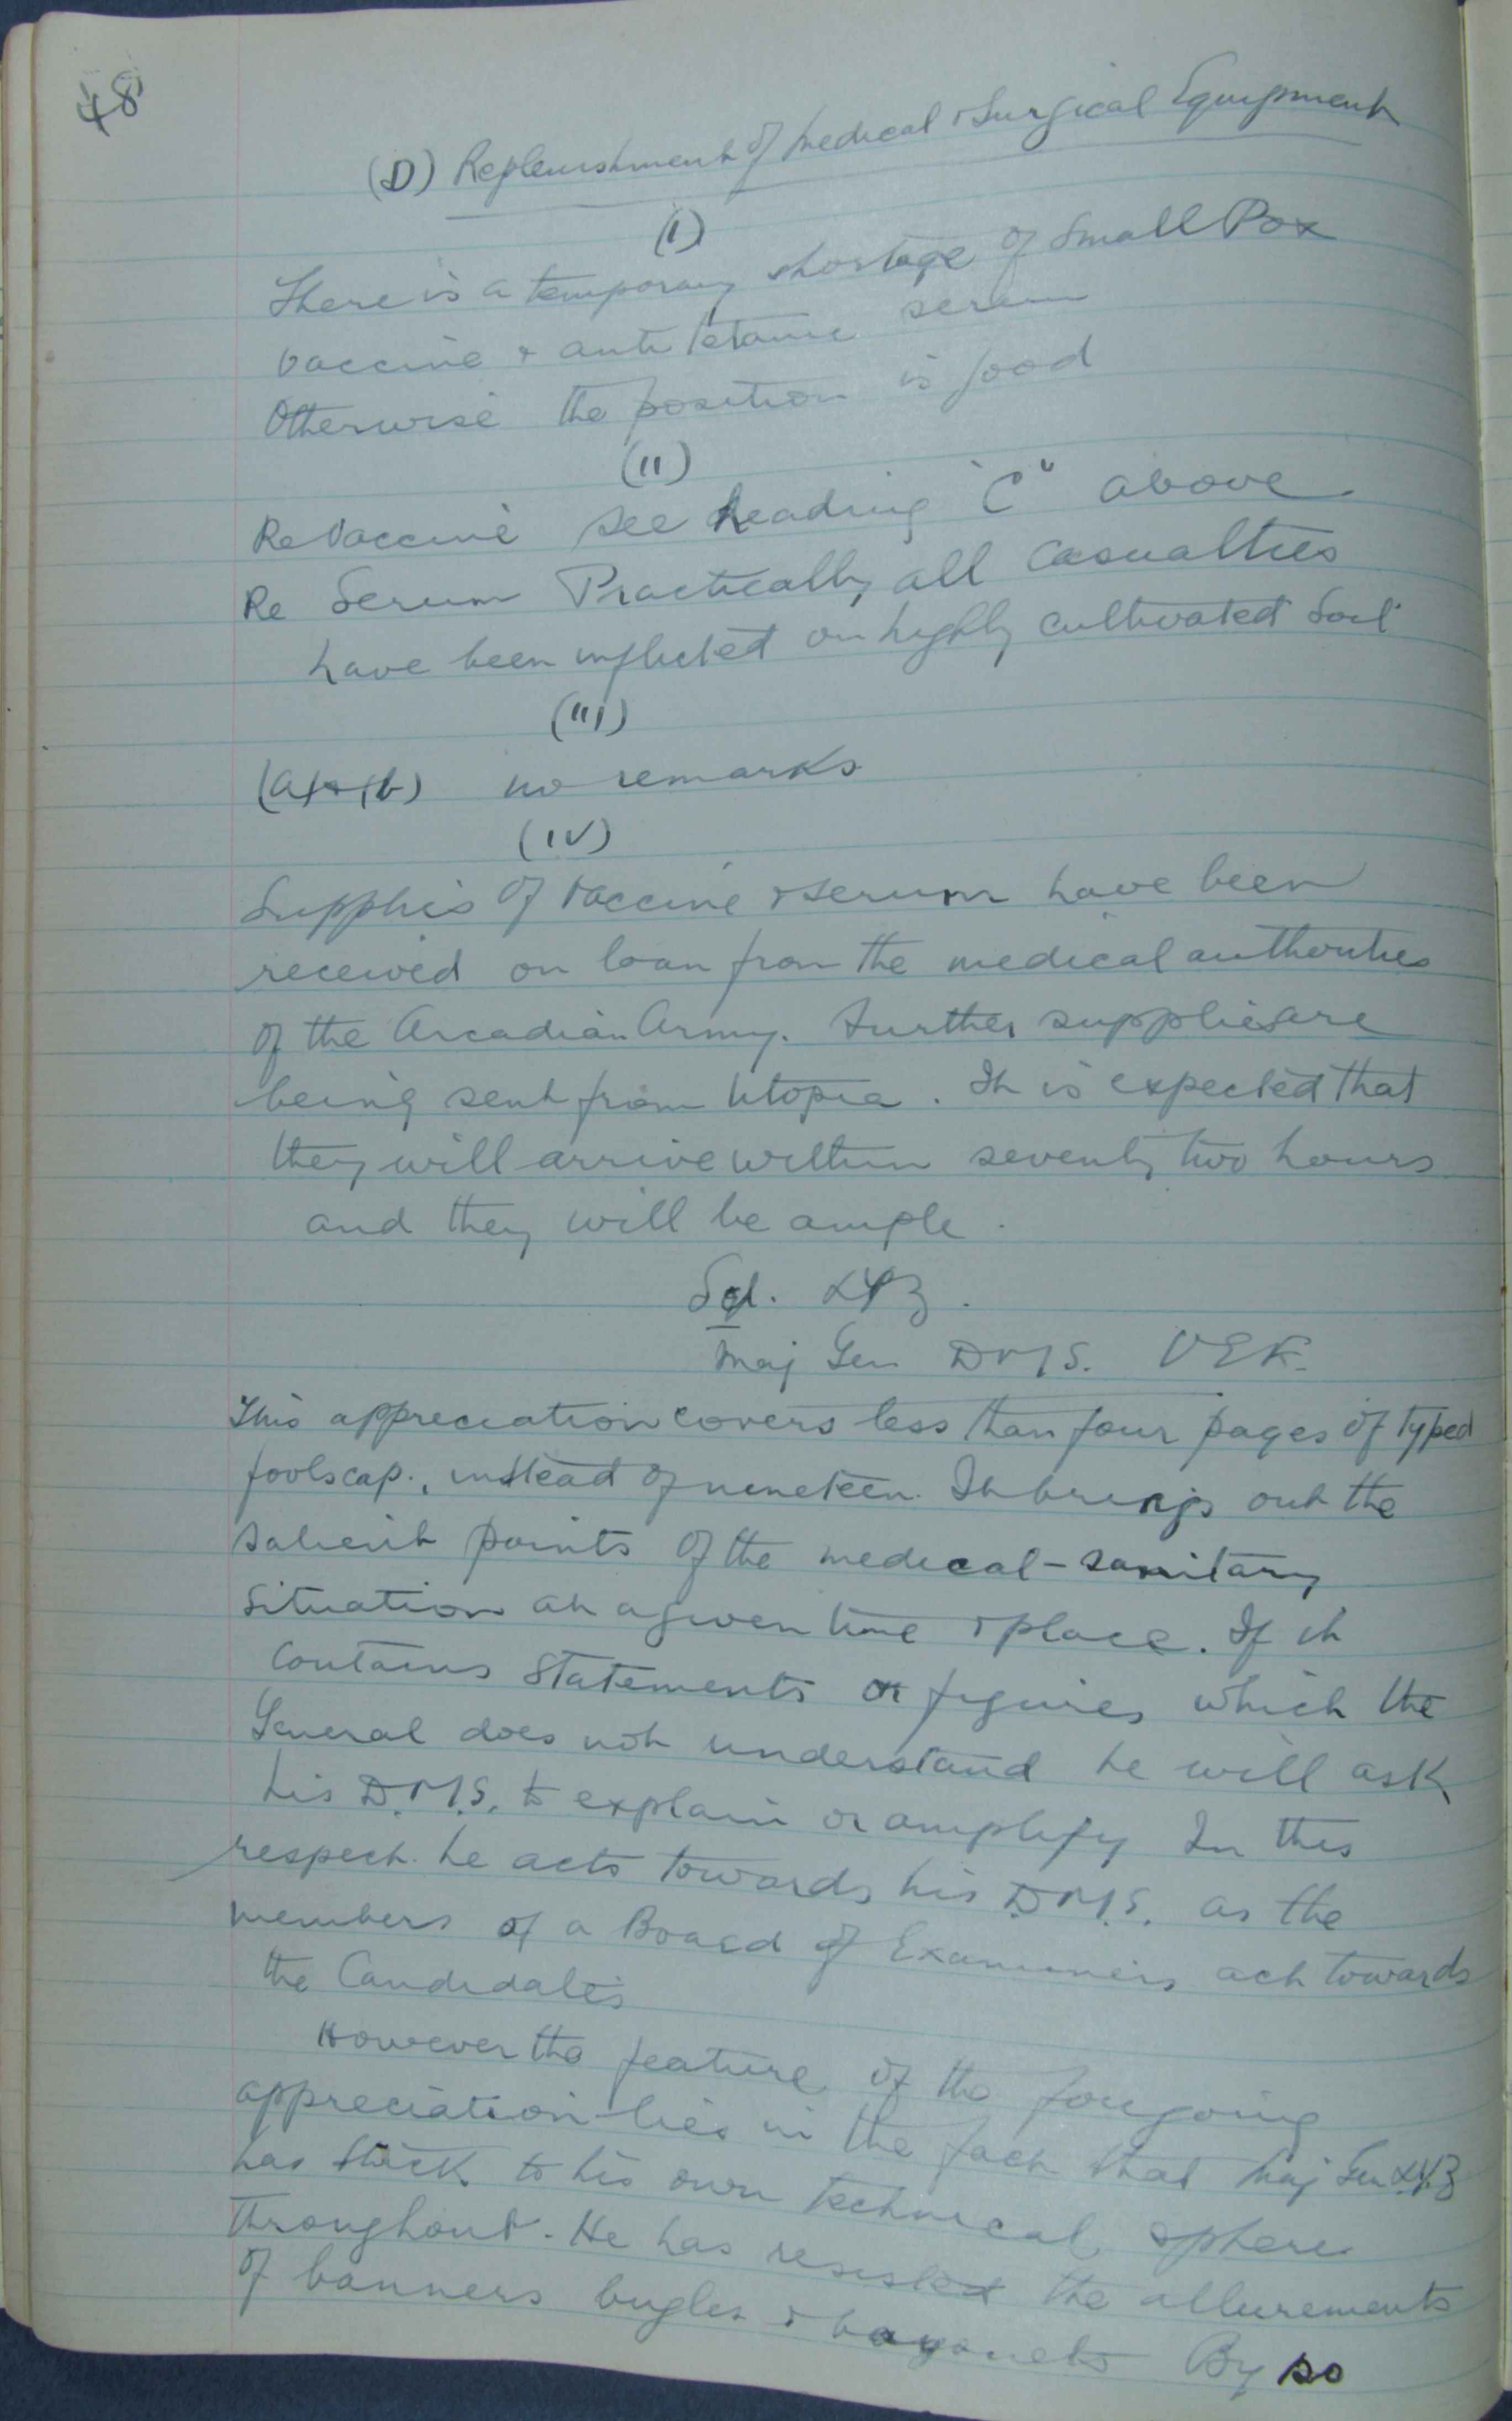 48
(D) Replenishment of Medical & Surgical Equipment
(I)
There is a temporary shortage of Small Pox
vaccine & anti tetanic serum
Otherwise the position is good
(II)
Re Vaccine see heading "C" above.
Re Serum Practically all casualties
have been inflicted on highly cultivated soil
(III)
(a) & (b) no remarks
(IV)
Supplies of vaccine & serum have been
received on loan from the medical authorities
of the Arcadian Army. Further supplies are
being sent from Utopia. It is expected that
they will arrive within seventy two hours
and they will be ample.
Sgd. XYZ.
Maj Gen DMS. VEF.
This appreciation covers less than four pages of typed
foolscap., instead of nineteen. It brings out the
salient points of the medical-sanitary
situation at a given time & place. If it
contains statements or figures which the
General does not understand he will ask
his D.M.S. to explain or amplify In this
respect he acts towards his D.M.S. as the
members of a Board of Examiners act towards
the Candidates
However the feature of the foregoing
appreciation lies in the fact that Maj Gen XYZ
has stuck to his own technical sphere
throughout. He has resisted the allurements
of banners bugles & bayonets By so